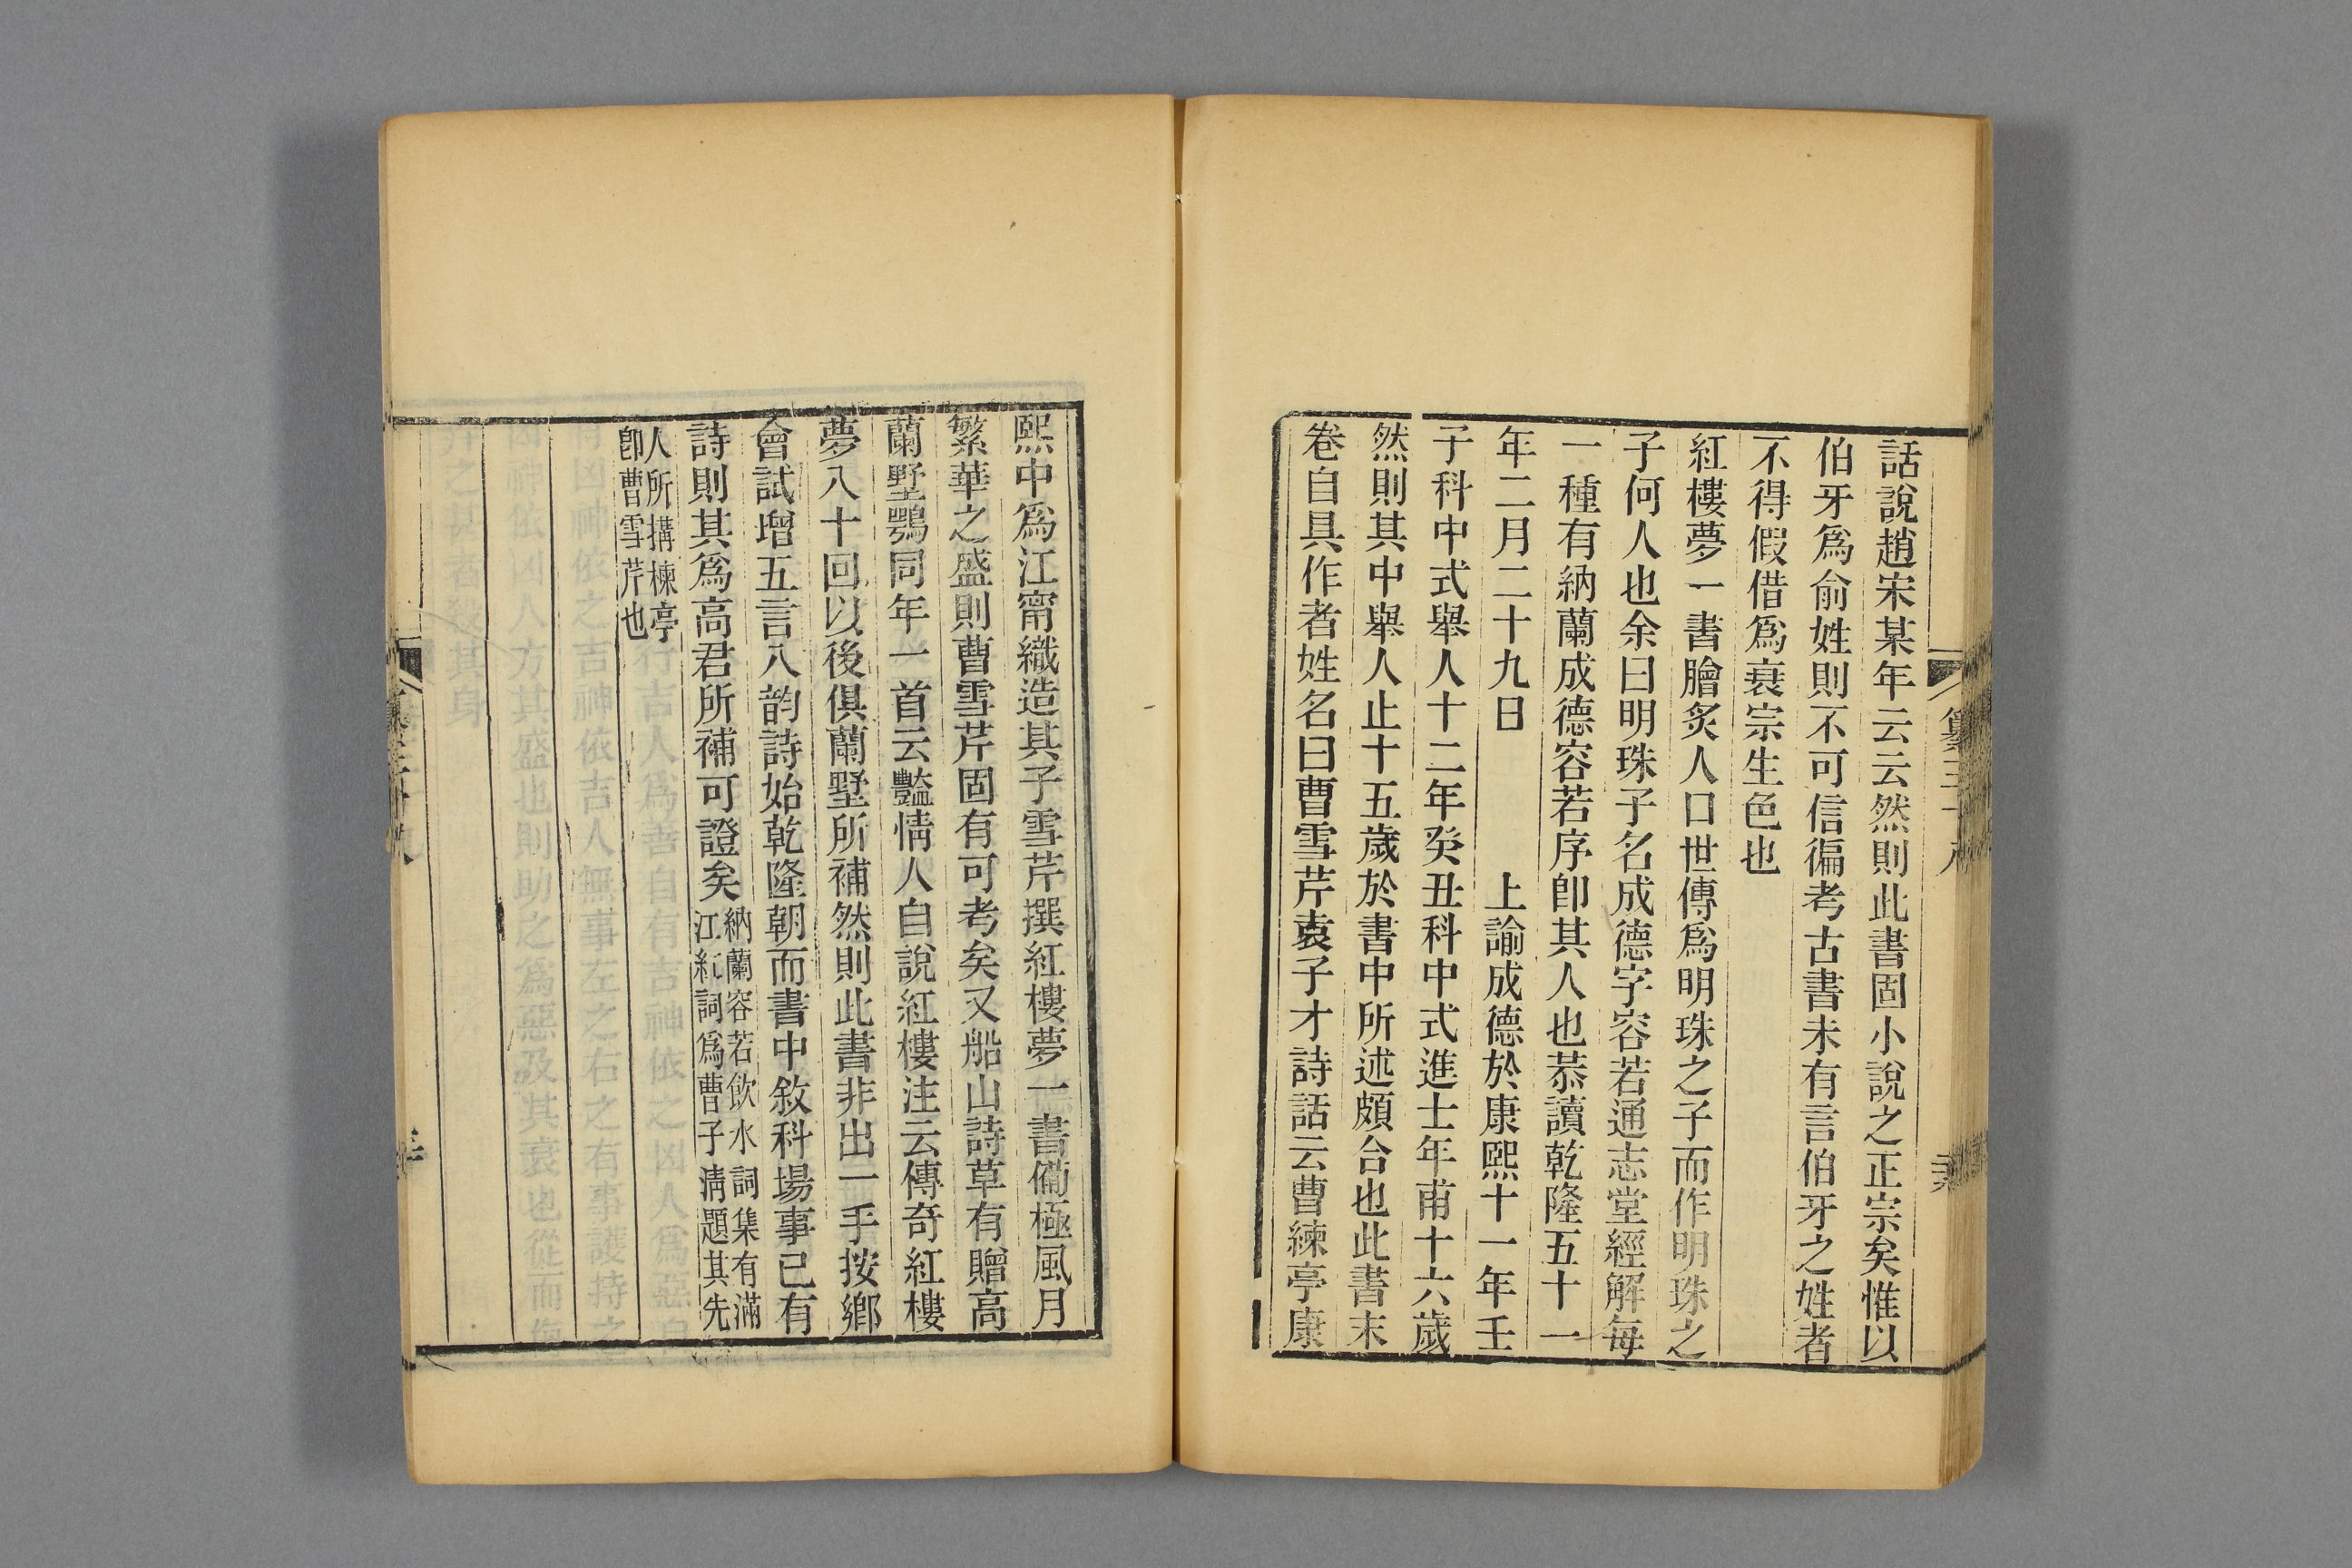 話說趙宋某年云云然則此書固小說之正宗矣惟以
伯牙爲俞姓則不可信徧考古書未有言伯牙之姓者
不得假借爲衰宗生色也
紅樓夢一書膾炙人口世傳爲明珠之子而作明珠之
子何人也余曰明珠子名成德字容若通志堂經解每
一種有納蘭成德容若序卽其人也恭讀乾隆五十一
年二月二十九日　上諭成德於康熙十一年壬
子科中式舉人十二年癸丑科中式進士年甫十六歲
然則其中舉人止十五歲於書中所述頗合也此書末
卷自具作者姓名曰曹雪芹袁子才詩話云曹練亭康
熙中爲江甯織造其子雪芹撰紅樓夢一書備極風月
繁華之盛則曹雪芹固有可考矣又船山詩草有贈高
蘭墅鶚同年一首云豔情人自說紅樓注云傳奇紅樓
夢八十回以後俱蘭墅所補然則此書非出一手按鄉
會試增五言八韵詩始乾隆朝而書中敘科場事已有
詩則其爲高君所補可證矣
納蘭容若飲水詞集有滿
江紅詞爲曹子淸題其先
人所搆楝亭
卽曹雪芹也